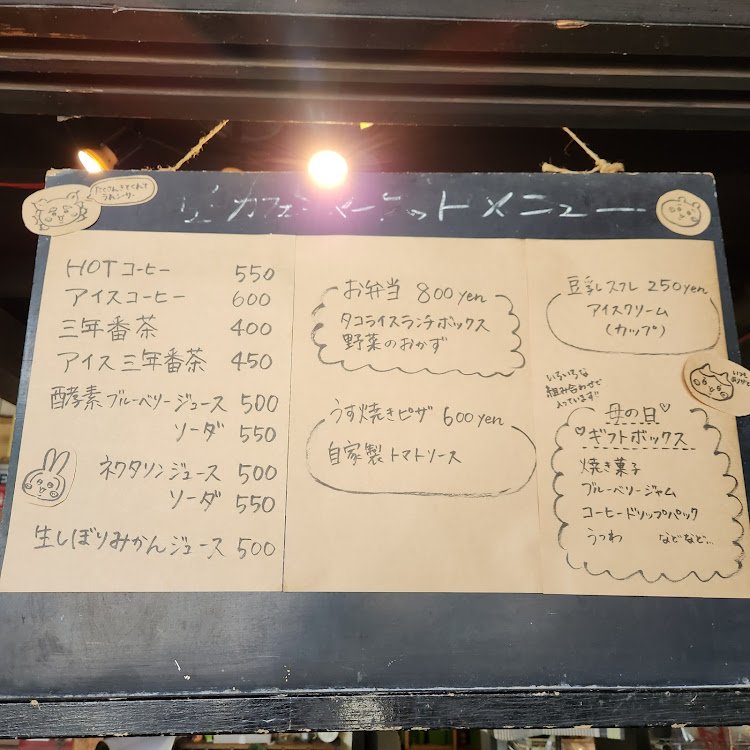 たくさんきてくれて
うれシーサー
カフェマーケットメニュー
HOTコーヒー 550
アイスコーヒー 600
三年番茶 400
アイス三年番茶 450
酵素ブルーベリージュース 500
ソーダ 550
ネクタリンジュース 500
ソーダ 550
生しぼりみかんジュース 500
お弁当 800yen
タコライスランチボックス
野菜のおかず
うす焼きピザ 600yen
自家製トマトソース
豆乳スフレ 250yen
アイスクリーム
(カップ)
いつも
ありがと
いろいろな
組み合わせで
入っています!!
母の日♡
♡ギフトボックス
焼き菓子
ブルーベリージャム
コーヒードリップパック
うつわ などなど...